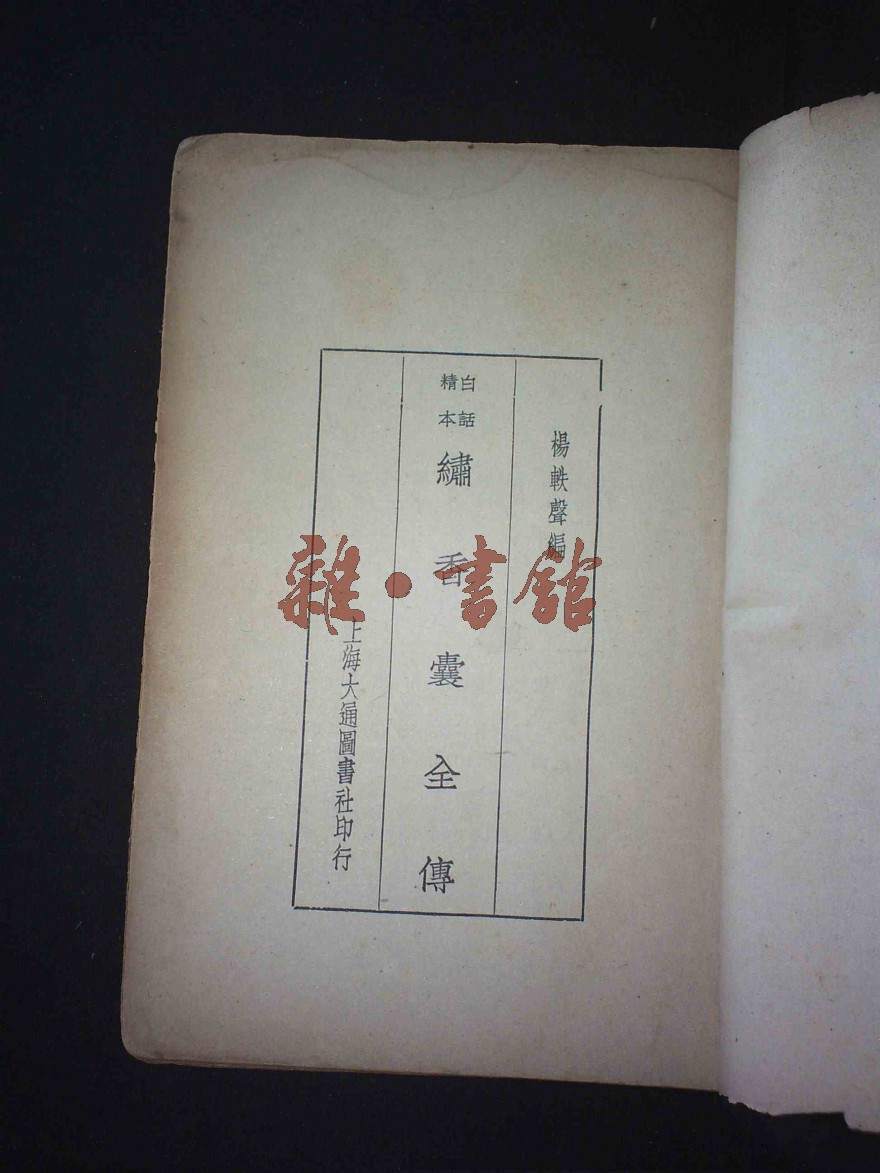 楊軼聲編
白話
精本
繡香囊全傳
上海大通圖書社印行
雜·書館